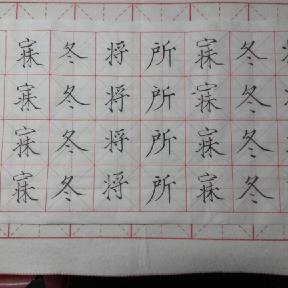 寐 冬 将 所 寐 冬
寐 冬 将 所 寐 冬
寐 冬 将 所 寐 冬
寐 冬 将 所 寐 冬